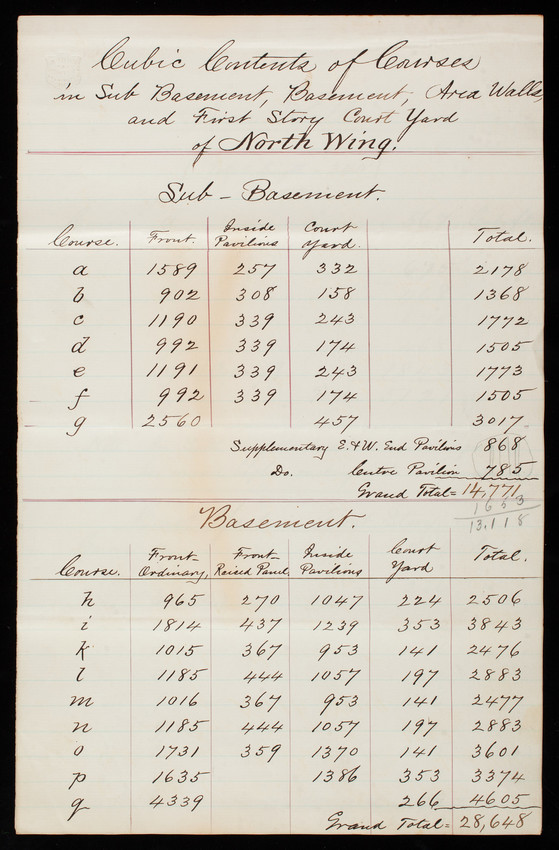 Cubic Contents of Courses
in Sub Basement, Basement, Area Walls,
and First Story Court Yard
of North Wing.
Sub-Basement.
Course. Front. Inside Pavilions Court Yard. Total.
a 1589 257 332 2178
b 902 308 158 1368
c 1190 339 243 1772
d 992 339 174 1505
e 1191 339 243 1773
f 992 339 174 1505
g 2560 457 3017
Supplementary E. & W. End Pavilions 868
Do. Centre Pavilion 785
Grand Total = 14,771
1653
13.118
Basement.
Course. Front Ordinary, Front Raised Panel. Inside Pavilions Court Yard Total.
h 965 270 1047 224 2506
i 1814 437 1239 353 3843
k 1015 367 953 141 2476
l 1185 444 1057 197 2883
m 1016 367 953 141 2477
n 1185 444 1057 197 2883
o 1731 359 1370 141 3601
p 1635 1386 353 3374
q 4339 266 4605
Grand Total = 28,648